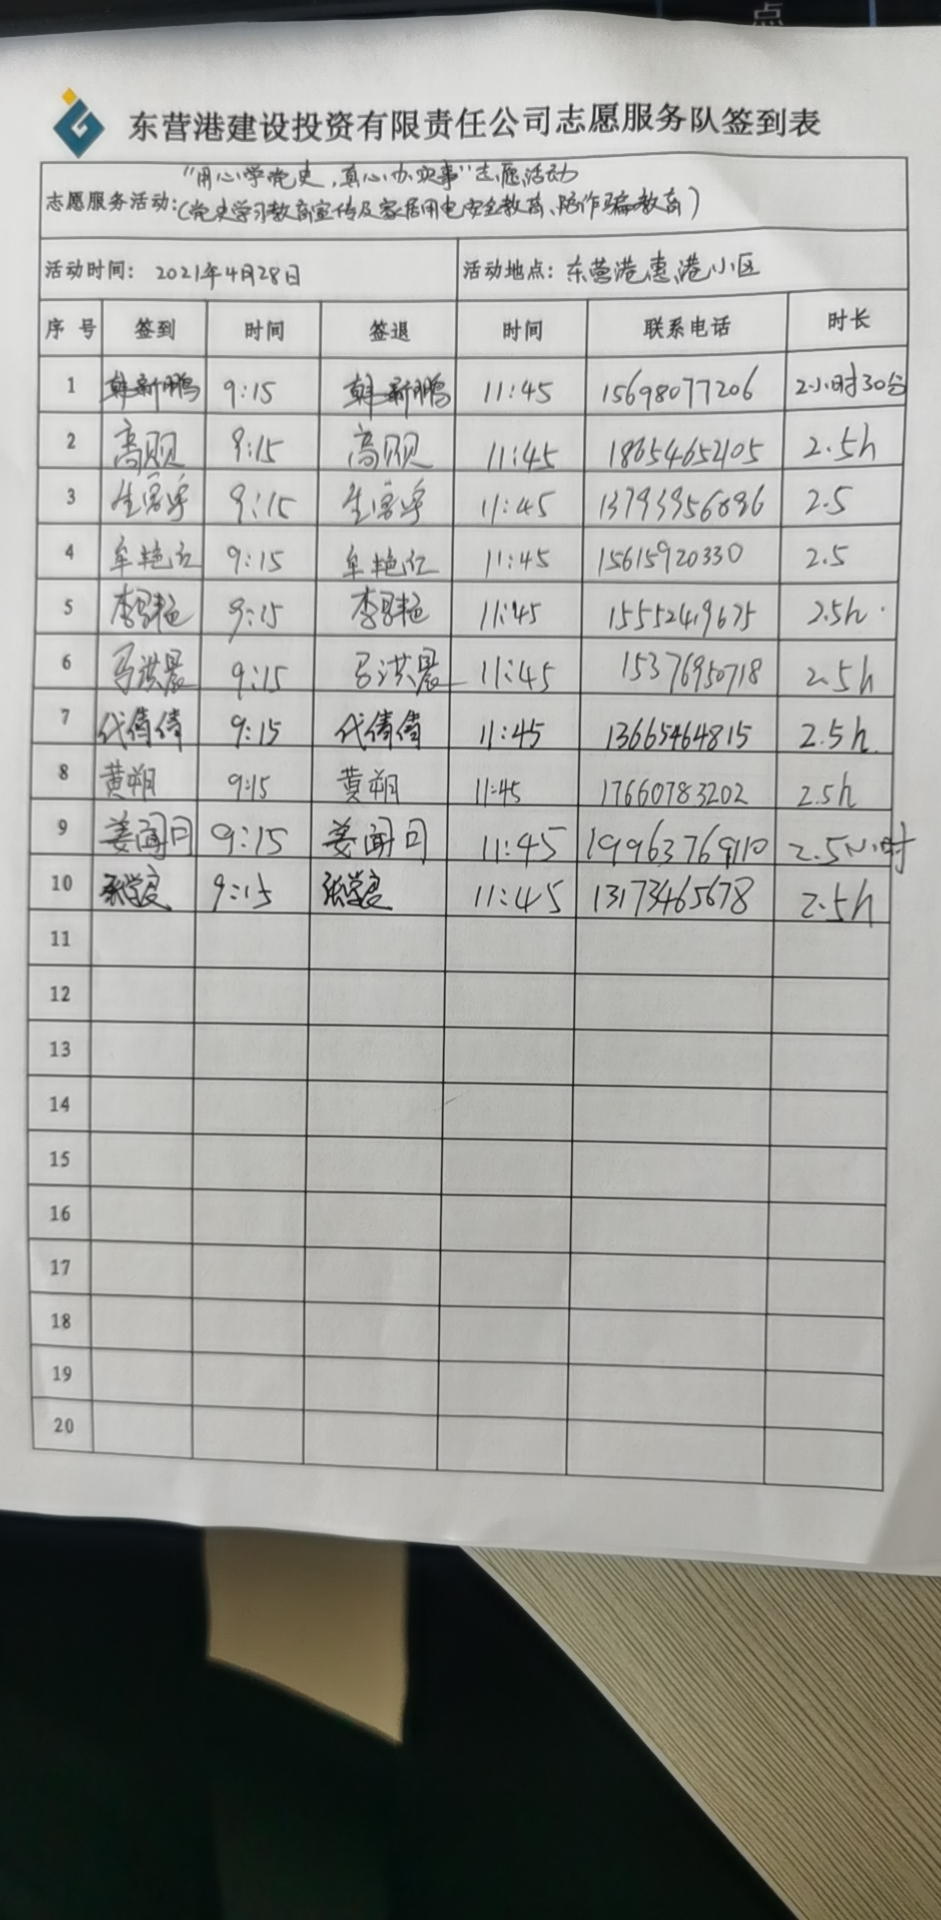 点
东营港建设投资有限责任公司志愿服务队签到表
"用心学党史,真心办实事"志愿活动
志愿服务活动:(党史学习教育宣传及家居用电安全教育、防诈骗教育)
活动时间: 2021年4月28日 活动地点: 东营港惠港小区
序号 签到 时间 签退 时间 联系电话 时长
1 韩新鹏 9:15 韩新鹏 11:45 15698077206 2小时30分
2 高 9:15 高 11:45 18654652105 2.5h
3 9:15 11:45 13793956896 2.5
4 牟艳红 9:15 牟艳红 11:45 15615920330 2.5
5 李 9:15 李 11:45 15552419675 2.5h
6 马洪晨 9:15 马洪晨 11:45 15376950718 2.5h
7 代倩倩 9:15 代倩倩 11:45 13665464815 2.5h
8 黄朔 9:15 黄朔 11:45 17660783202 2.5h
9 姜闻 9:15 姜闻 11:45 19963769110 2.5小时
10 张学良 9:15 张学良 11:45 13173465678 2.5h
11
12
13
14
15
16
17
18
19
20